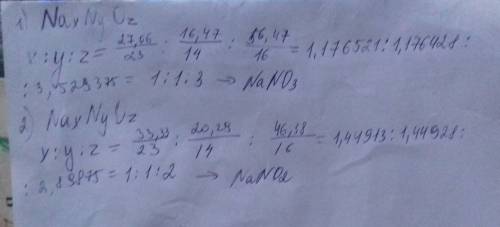 1) NaxNyOz
x:y:z = 27,06/23 : 16,47/14 : 56,47/16 = 1,176521:1,176428:
:3,529375 = 1:1:3 → NaNO3
2) NaxNyOz
x:y:z = 33,33/23 : 20,29/14 : 46,38/16 = 1,44913:1,44928:
:2,89875 = 1:1:2 → NaNO2